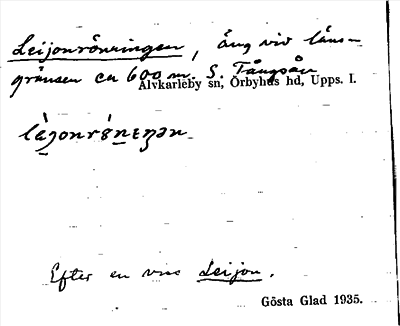 Leijonrönningen, äng vid läns-
gränsen ca 600 m. S. Tångsån
Älvkarleby sn, Örbyhus hd, Upps. l.
Efter en viss Leijon.
Gösta Glad 1935.